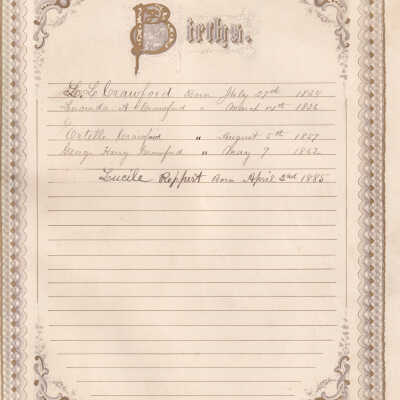 Births.
L. L. Crawford Born July 27nd 1824
Lucinda A Crawford " March 12th 1826
Estelle Crawford " August 5th 1857
George Henry Crawford " May 7 1862
Lucile Reppert Born April 2nd 1885